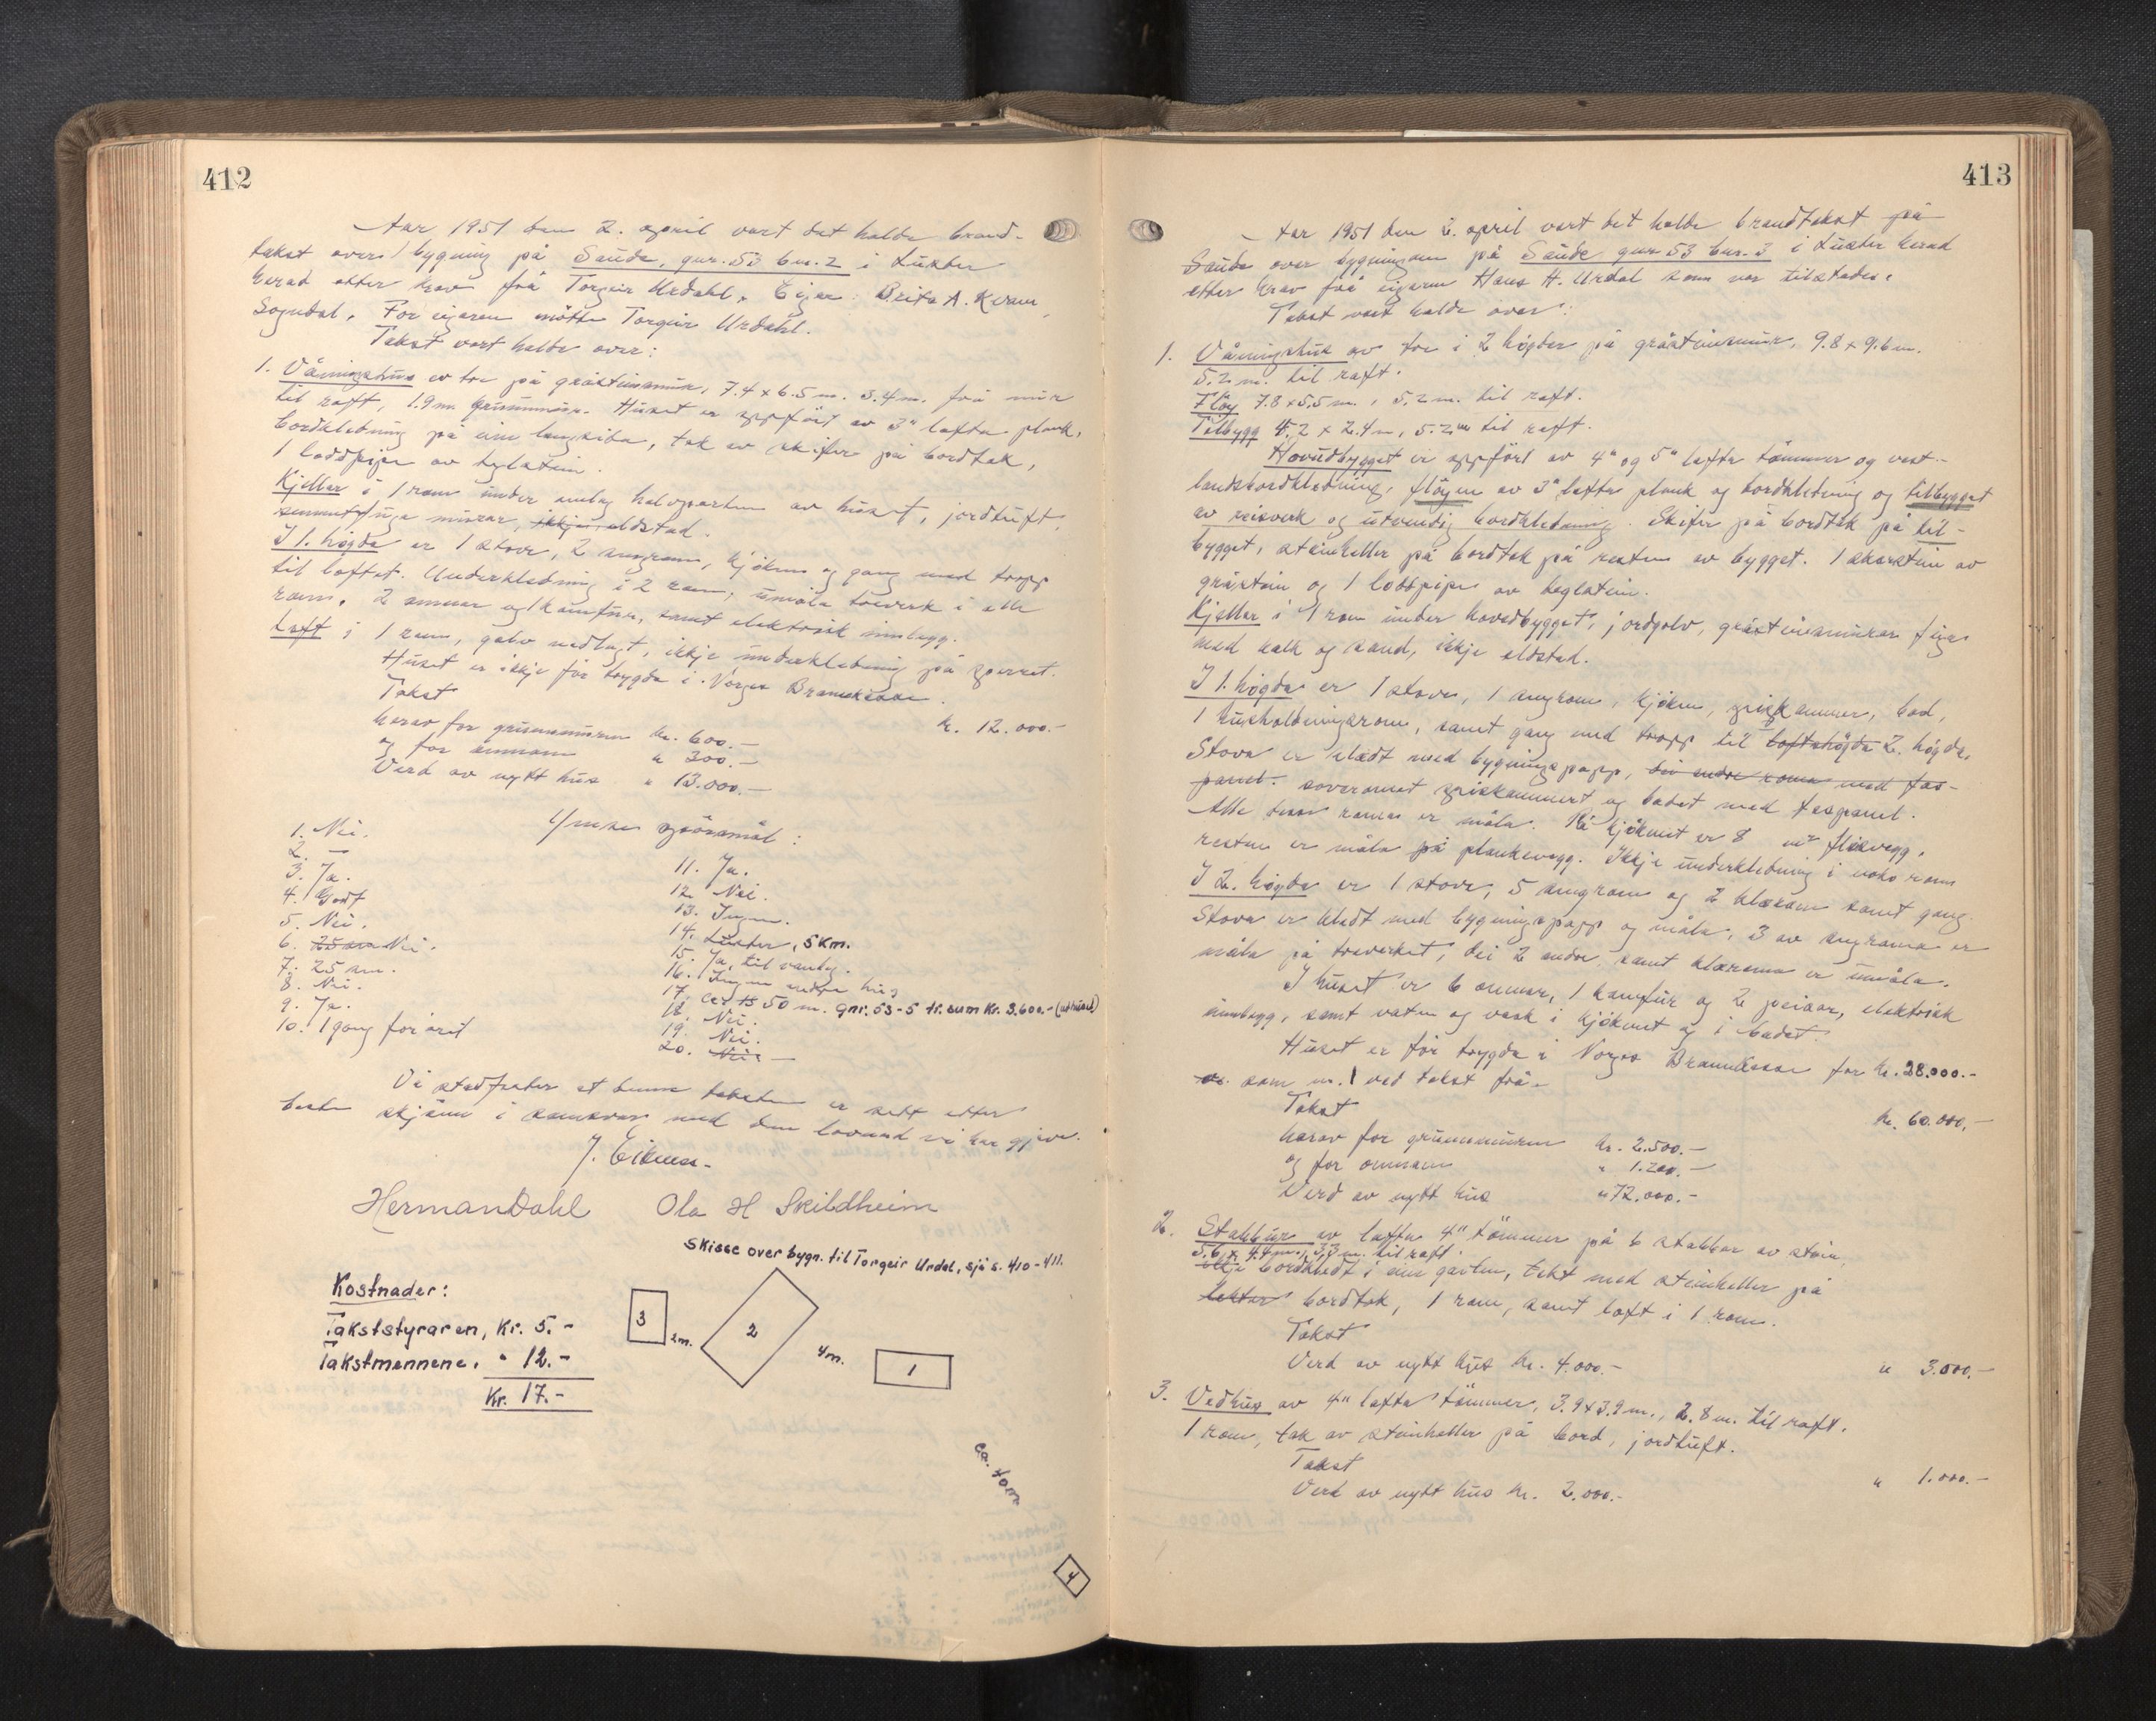 412
Aar 1951 den 2. april vart det halde brand-
takst over 1 bygning på Saude, gnr. 53 bnr. 2 i Luster
herad etter krav frå Torgeir Urdahl. Eigar: Brita A. Kvam,
Sogndal. For eigaren møtte Torgeir Urdahl.
Takst vart halde over:
1. Våningshus av tre på gråsteinsmur, 7.4 x 6.5 m. 3.4 m. frå mur
til raft, 1.9 m. grunnmur. Huset er uppført av 3" lafta plank,
bordkledning på ein langside, tak av skifer på bordtak,
1 loddpipe av teglstein.
Kjellar i 1 rom under umlag halvparten av huset, jordtuft,
sementfuga murar, ikkje eldstad.
I 1. høgda er 1 stove, 2 sengrom, kjøken og gang med tropp
til loftet. Underkledning i 2 rom, umåla treverk i alle
rom. 2 omnar og 1 kamfur, samt elektrisk innlegg.
Loft i 1 rom, golv nedlagt, ikkje underkledning på sperret.
Huset er ikkje før trygda i Norges Brannkasse.
Takst kr. 12.000.-
herav for grunnmuren kr. 600.-
og for omnane " 300.-
Verd av nytt hus " 13.000.-
Ymse spörsmål:
1. Nei.
2. —
3. Ja.
4. Godt
5. Nei.
6. 25 cm Nei.
7. 25 cm.
8. Nei.
9. Ja.
10. 1 gong for året
11. Ja.
12. Nei.
13. Ingen.
14. Luster, 5 km.
15. Ja, til vanleg.
16. Ingen andre hus
17. ca. 50 m. gnr. 53-5 tr. sum Kr. 3.600.- (uthuset)
18. Nei.
19. Nei.
20. Nei. —
Vi stadfester at denne taksten er sett etter
beste skjønn i samsvar med den lovnad vi har gjeve.
J. Eikum.
Herman Dahl Ola H Skildheim
Skisse over bygn. til Torgeir Urdal, sjå s. 410-411.
Kostnader:
Takststyraren, Kr. 5.-
Takstmennene, " 12.-
Kr. 17.-
3
2m.
2
4m.
1
ca. 40m
4
413
Aar 1951 den 2. april vart det halde brandtakst på
Saude over bygningane på Saude gnr. 53 bnr. 3 i Luster herad
etter krav frå eigaren Hans H. Urdal som var tilstades.
Takst vart halde over:
1. Våningshus av tre i 2 høgder på gråsteinsmur, 9.8 x 9.6 m.
5.2 m. til raft.
Fløy 7.8 x 5.5 m., 5.2 m. til raft.
Tilbygg 4.2 x 2.4 m, 5.2 m til raft.
Hovudbygget er uppført av 4" og 5" lafta tømmer og vest-
landsbordkledning, fløyen av 3" lafta plank og bordkledning og tilbygget
av reisverk og utvendig bordkledning. Skifer på bordtak på til-
bygget, steinheller på bordtak på resten av bygget. 1 skorstein av
gråstein og 1 loddpipe av teglstein.
Kjellar i 1 rom under hovedbygget, jordgolv, gråsteinsmurar fuga
med kalk og sand, ikkje eldstad.
I 1. høgda er 1 stove, 1 sengrom, kjøken, spiskammer, bad,
1 husholdningsrom, samt gang med tropp til loftshøgda 2. høgda.
Stova er kledt med bygningspapp, dei andre roma med fas-
panel. soverommet spiskammert og badet med faspanel.
Alle desse roma er måla. På kjøkenet er 8 m² flisvegg,
resten er måla på plankevegg. Ikkje underkledning i noko rom
I 2. høgda er 1 stove, 5 sengrom og 2 klærom samt gang.
Stova er kledt med bygningspapp og måla, 3 av sengroma er
måla på treverket, dei 2 andre, samt klæroma er umåla.
I huset er 6 omnar, 1 kamfur og 2 peisar, elektrisk
innlegg, samt vatn og vask i kjøkenet og i badet.
Huset er før trygda i Norges Brannkasse for kr. 28.000.-
som nr. 1 ved takst frå -
Takst kr. 60.000.-
herav for grunnmuren kr. 2.500.-
og for omnane " 1.200.-
Verd av nytt hus " 72.000.-
2. Stabbur av lafta 4" tømmer på 6 stabbar av stein,
5.6 x 4.4 m., 3.3 m. til raft.
ikkje bordkledt i eine gavlen, tekt med steinheller på
lekter bordtak, 1 rom, samt loft i 1 rom.
Takst
Verd av nytt hus kr. 4.000.- " 3.000.-
3. Vedhus av 4" lafta tømmer, 3.9 x 3.9 m., 2.8 m. til raft.
1 rom, tak av steinheller på bord, jordtuft.
Takst
Verd av nytt hus kr. 2.000.- " 1.000.-